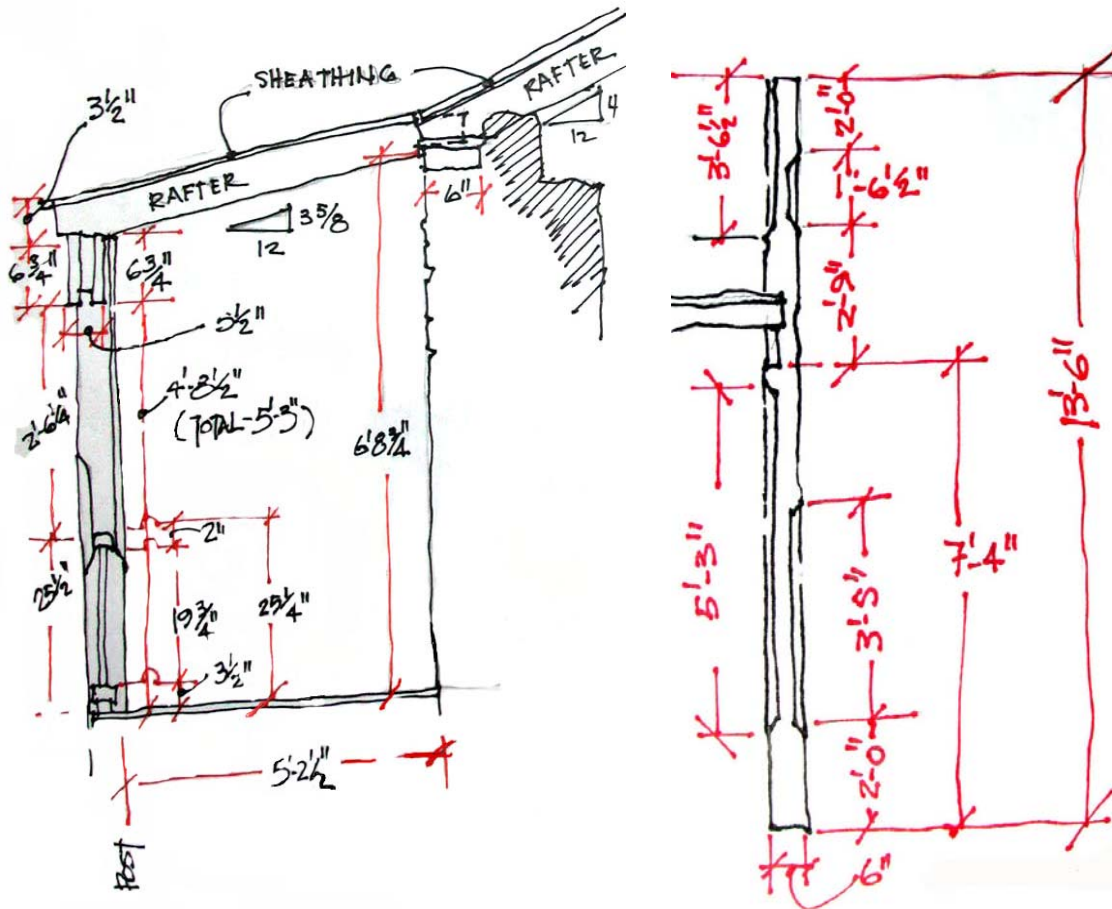 SHEATHING
3½"
RAFTER
4
12
RAFTER
3⅝
12
6"
6¾"
6¾"
5½"
4'-8½"
(TOTAL-5'-3")
2'-6¼"
6'8¾"
2"
25½"
19¾"
25¼"
3½"
5'-2½"
POST
3'-6½"
2'-0"
1'-6½"
2'-9"
13'-6"
5'-3"
7'-4"
3'-5"
2'-0"
6"